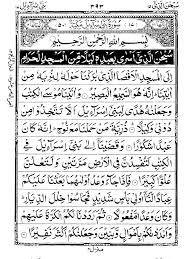 ۳۹۳
بِسْمِ اللهِ الرَّحْمٰنِ الرَّحِيْمِ
سُبْحٰنَ الَّذِيْٓ اَسْرٰى بِعَبْدِهٖ لَيْلًا مِّنَ الْمَسْجِدِ الْحَرَامِ
اِلَى الْمَسْجِدِ الْاَقْصَا الَّذِيْ بٰرَكْنَا حَوْلَهٗ لِنُرِيَهٗ مِنْ
اٰيٰتِنَا اِنَّهٗ هُوَ السَّمِيْعُ الْبَصِيْرُ وَاٰتَيْنَا مُوْسَى الْكِتٰبَ
وَجَعَلْنٰهُ هُدًى لِّبَنِيْٓ اِسْرَآءِيْلَ اَلَّا تَتَّخِذُوْا مِنْ دُوْنِيْ
وَكِيْلًا ذُرِّيَّةَ مَنْ حَمَلْنَا مَعَ نُوْحٍ اِنَّهٗ كَانَ عَبْدًا
شَكُوْرًا وَقَضَيْنَآ اِلٰى بَنِيْٓ اِسْرَآءِيْلَ فِي الْكِتٰبِ
لَتُفْسِدُنَّ فِي الْاَرْضِ مَرَّتَيْنِ وَلَتَعْلُنَّ
عُلُوًّا كَبِيْرًا فَاِذَا جَآءَ وَعْدُ اُوْلٰىهُمَا بَعَثْنَا
عَلَيْكُمْ عِبَادًا لَّنَآ اُولِيْ بَاْسٍ شَدِيْدٍ فَجَاسُوْا خِلٰلَ الدِّيَارِ
وَكَانَ وَعْدًا مَّفْعُوْلًا ثُمَّ رَدَدْنَا لَكُمُ الْكَرَّةَ عَلَيْهِمْ
وَاَمْدَدْنٰكُمْ بِاَمْوَالٍ وَّبَنِيْنَ وَجَعَلْنٰكُمْ اَكْثَرَ نَفِيْرًا